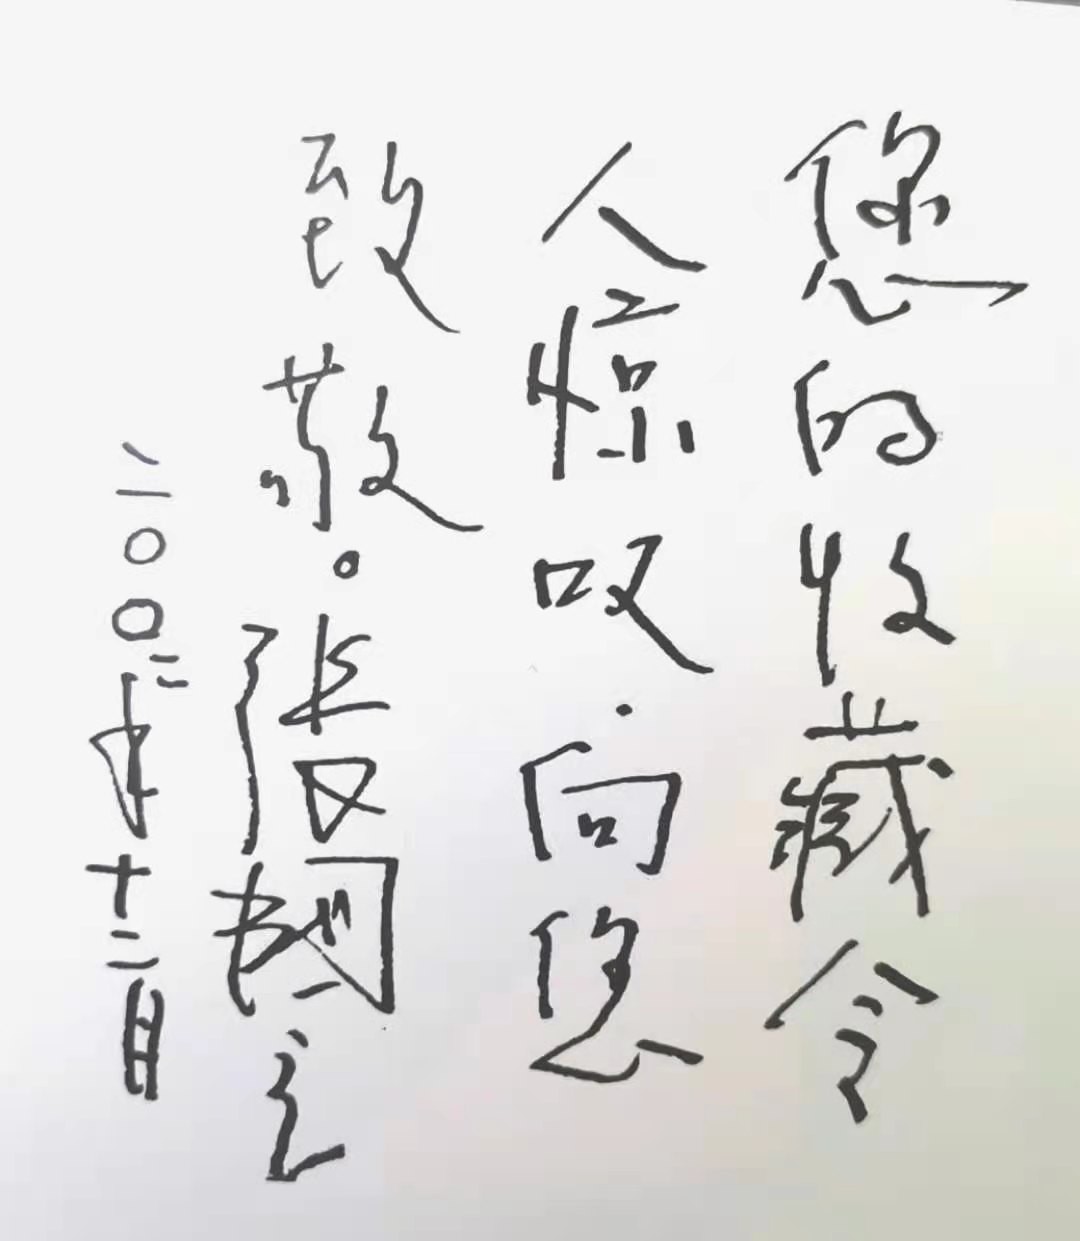 您的收藏令
人惊叹.向您
致敬。张
二〇〇二年十二月